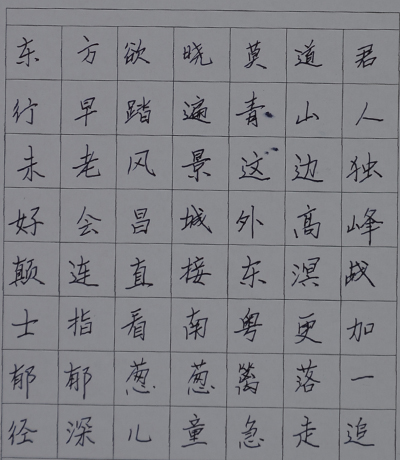 东方欲晓莫道君
行早踏遍青山人
未老风景这边独
好会昌城外高峰
颠连直接东溟战
士指看南粤更加
郁郁葱葱篱落一
径深儿童急走追